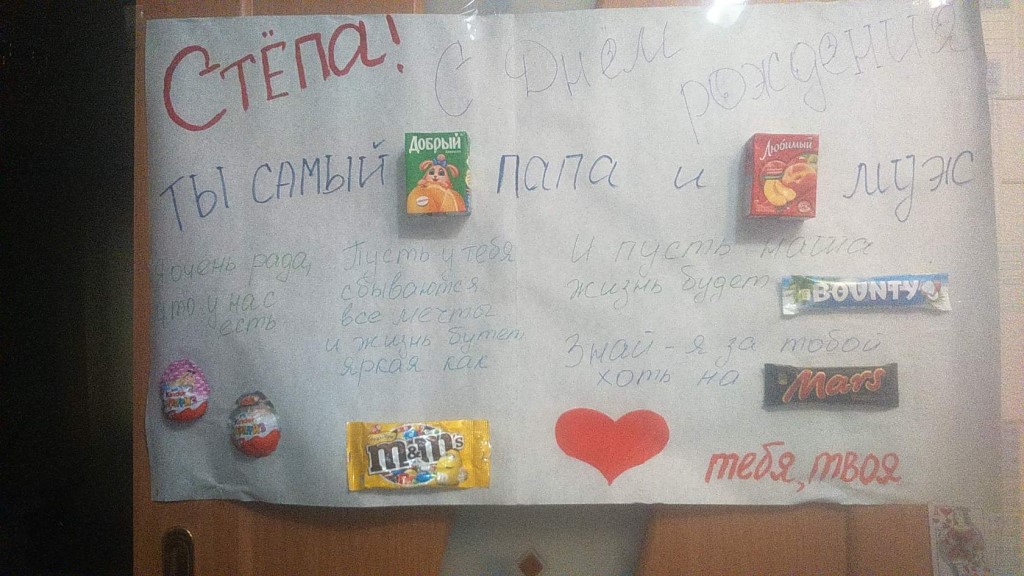 СТЁПА! С Днём рождения
ТЫ САМЫЙ Добрый ПАПА и Любимый муж
Я очень рада,
что у нас
есть
Kinder
Kinder
Пусть у тебя
сбываются
все мечты
и жизнь бутет
яркая как
m&m's
И пусть наша
жизнь будет BOUNTY
Знай - я за тобой
хоть на Mars
тебя, твоя